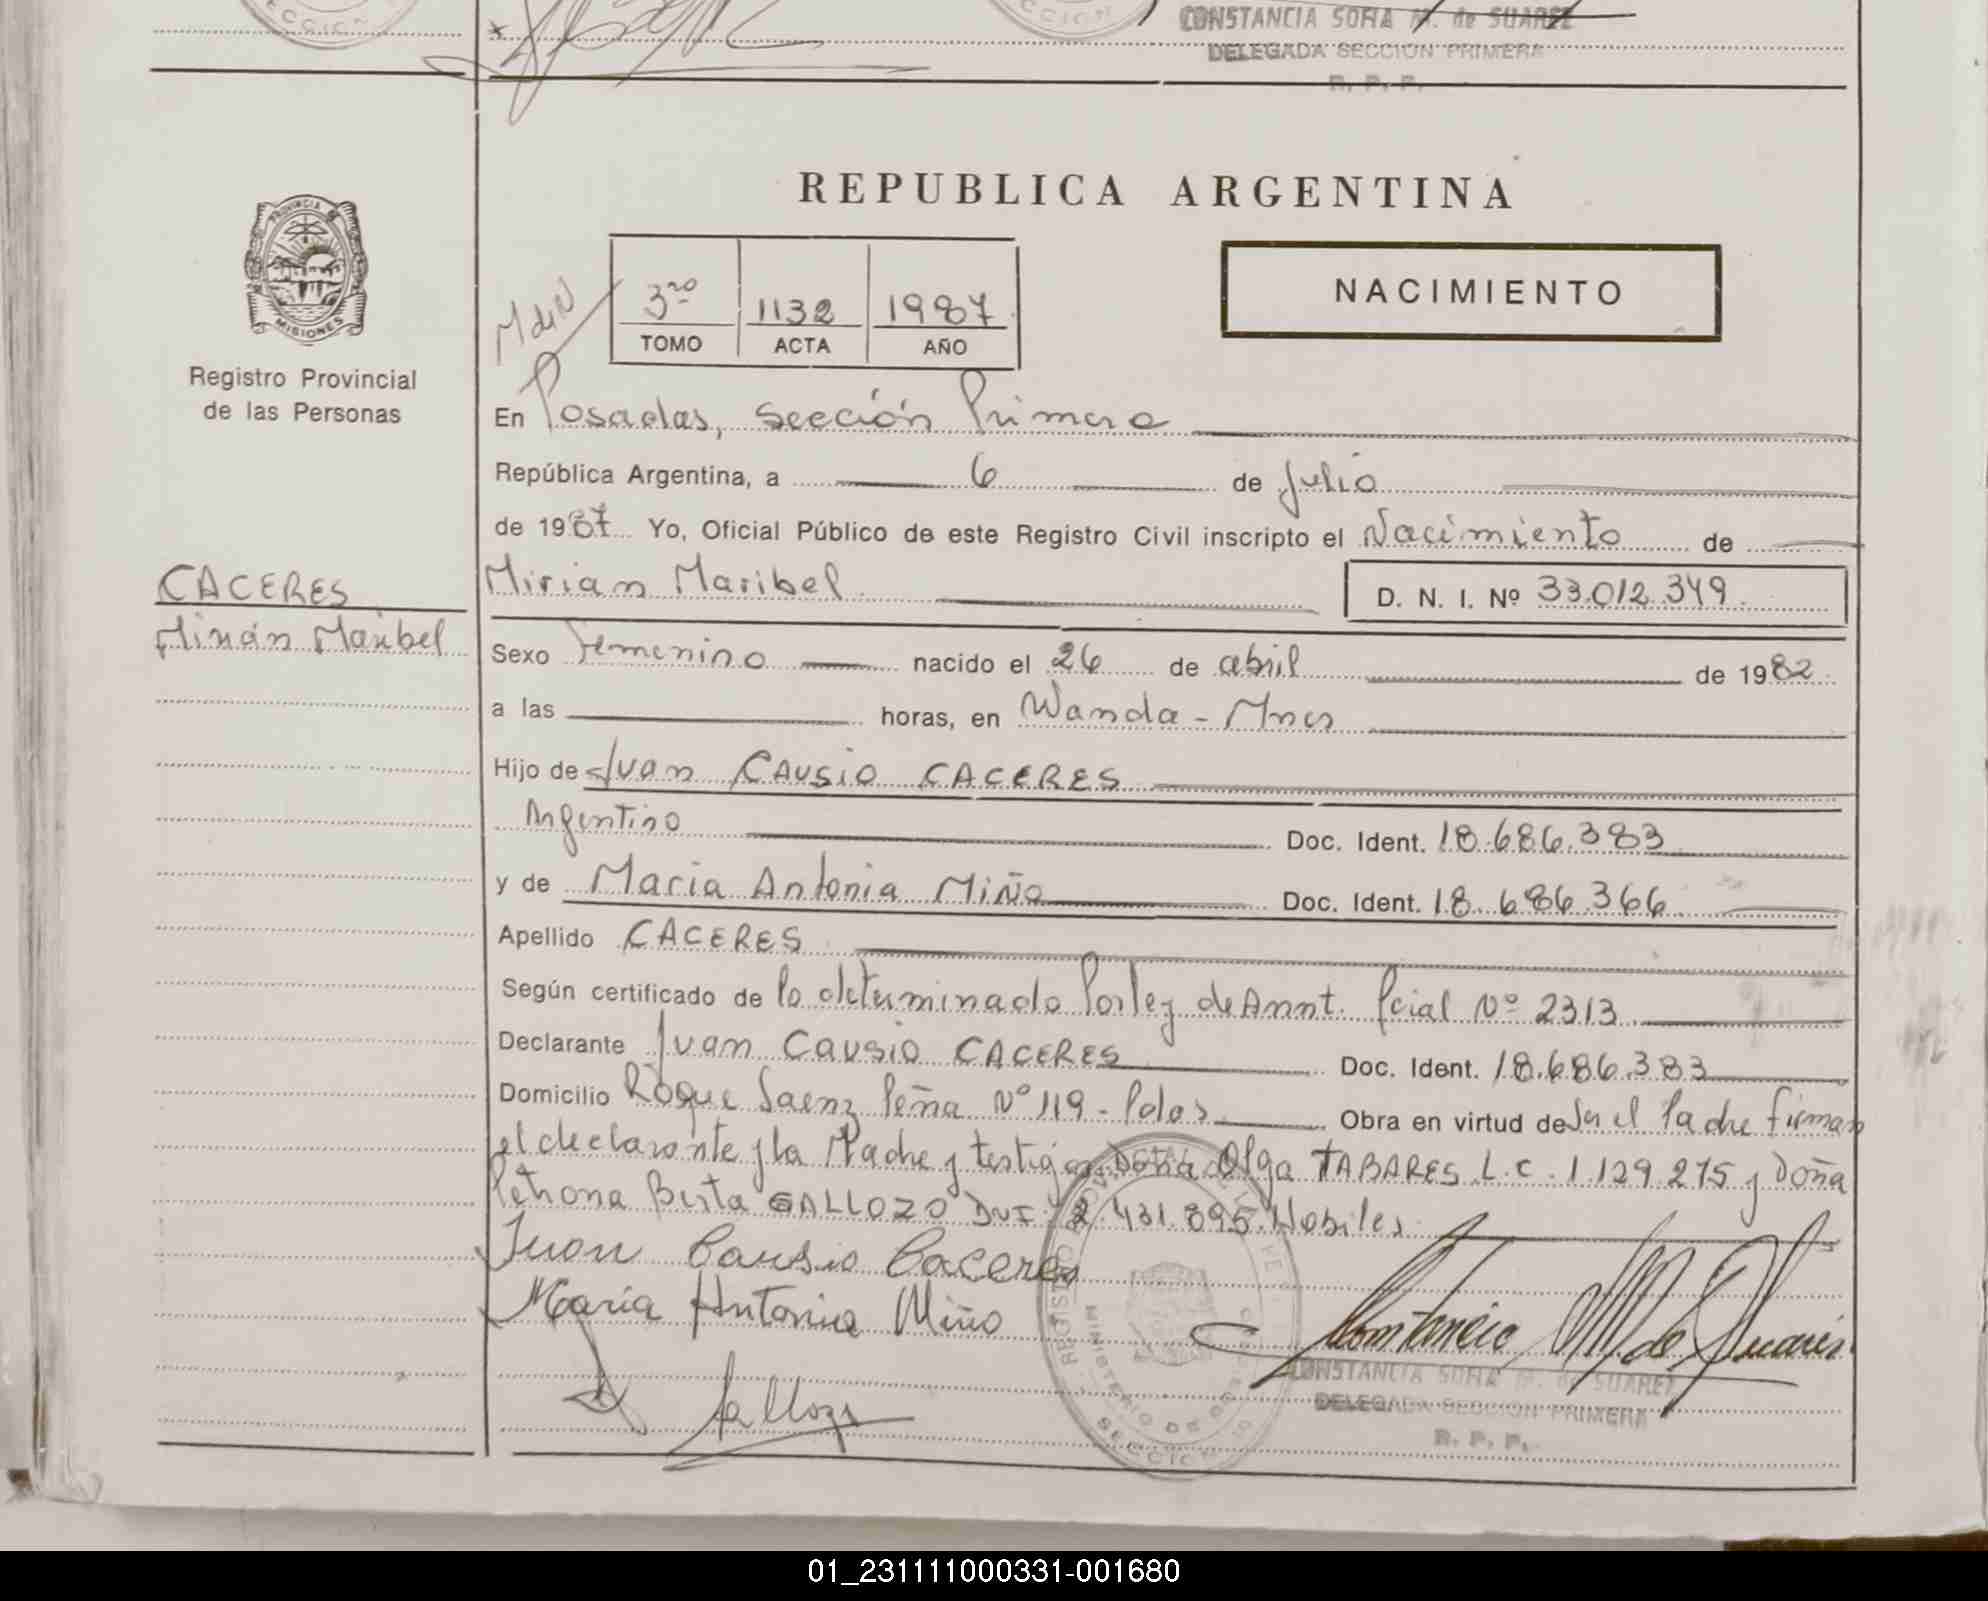 CONSTANCIA SOFIA M. de SUAREZ
DELEGADA SECCION PRIMERA
R. P. P.
REPUBLICA ARGENTINA
PROVINCIA DE
MISIONES
Registro Provincial
de las Personas
3ro 1132 1987
TOMO ACTA AÑO
NACIMIENTO
En Posadas, Sección Primera
República Argentina, a 6 de Julio
de 1987 Yo, Oficial Público de este Registro Civil inscripto el Nacimiento de
CACERES
Mirian Maribel
Mirian Maribel D. N. I. Nº 33.012.349
Sexo Femenino nacido el 26 de abril de 1982
a las horas, en Wanda - Mnes
Hijo de Juan CAUSIO CACERES
Argentino Doc. Ident. 18.686.383
y de Maria Antonia Miño Doc. Ident. 18.686.366
Apellido CACERES
Según certificado de lo determinado Por ley de Amnt. Pcial Nº 2313
Declarante Juan Causio CACERES Doc. Ident. 18.686.383
Domicilio Roque Saenz Peña Nº 119 - Pdas Obra en virtud de Ser el Padre firman
el declarante y la Madre y testigos Doña Olga TABARES L.C. 1.129.275 y Doña
Petrona Berta GALLOZO DNI 2.431.895 Hobiles
Juan Causio Caceres
Maria Antonia Miño
Constancia M. de Suarez
CONSTANCIA SOFIA M. de SUAREZ
DELEGADA SECCION PRIMERA
R. P. P.
01_231111000331-001680